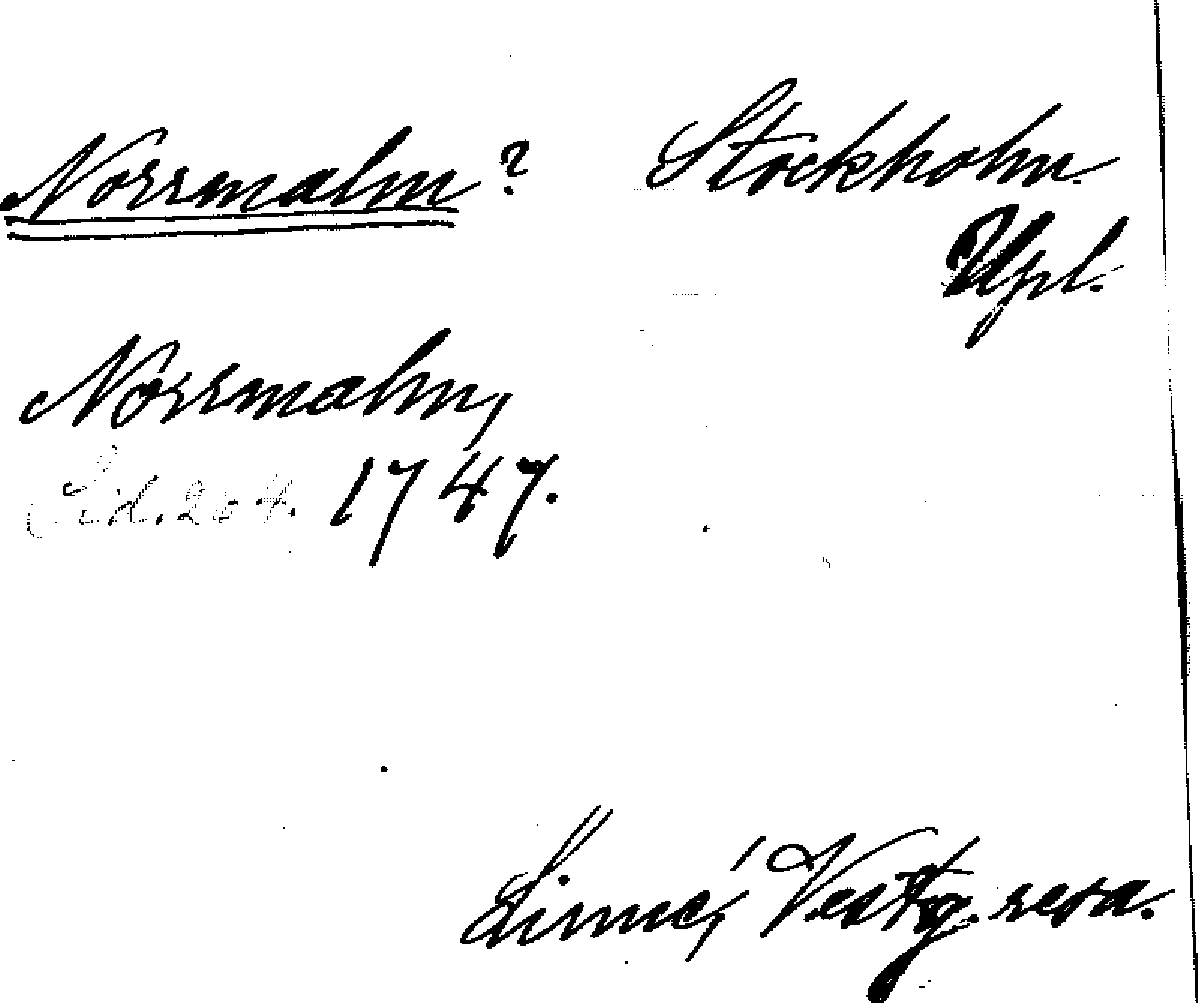 Norrmalm? Stockholm.
Upl.
Norrmalm,
Sid. 204. 1747.
Linné, Vestg. resa.